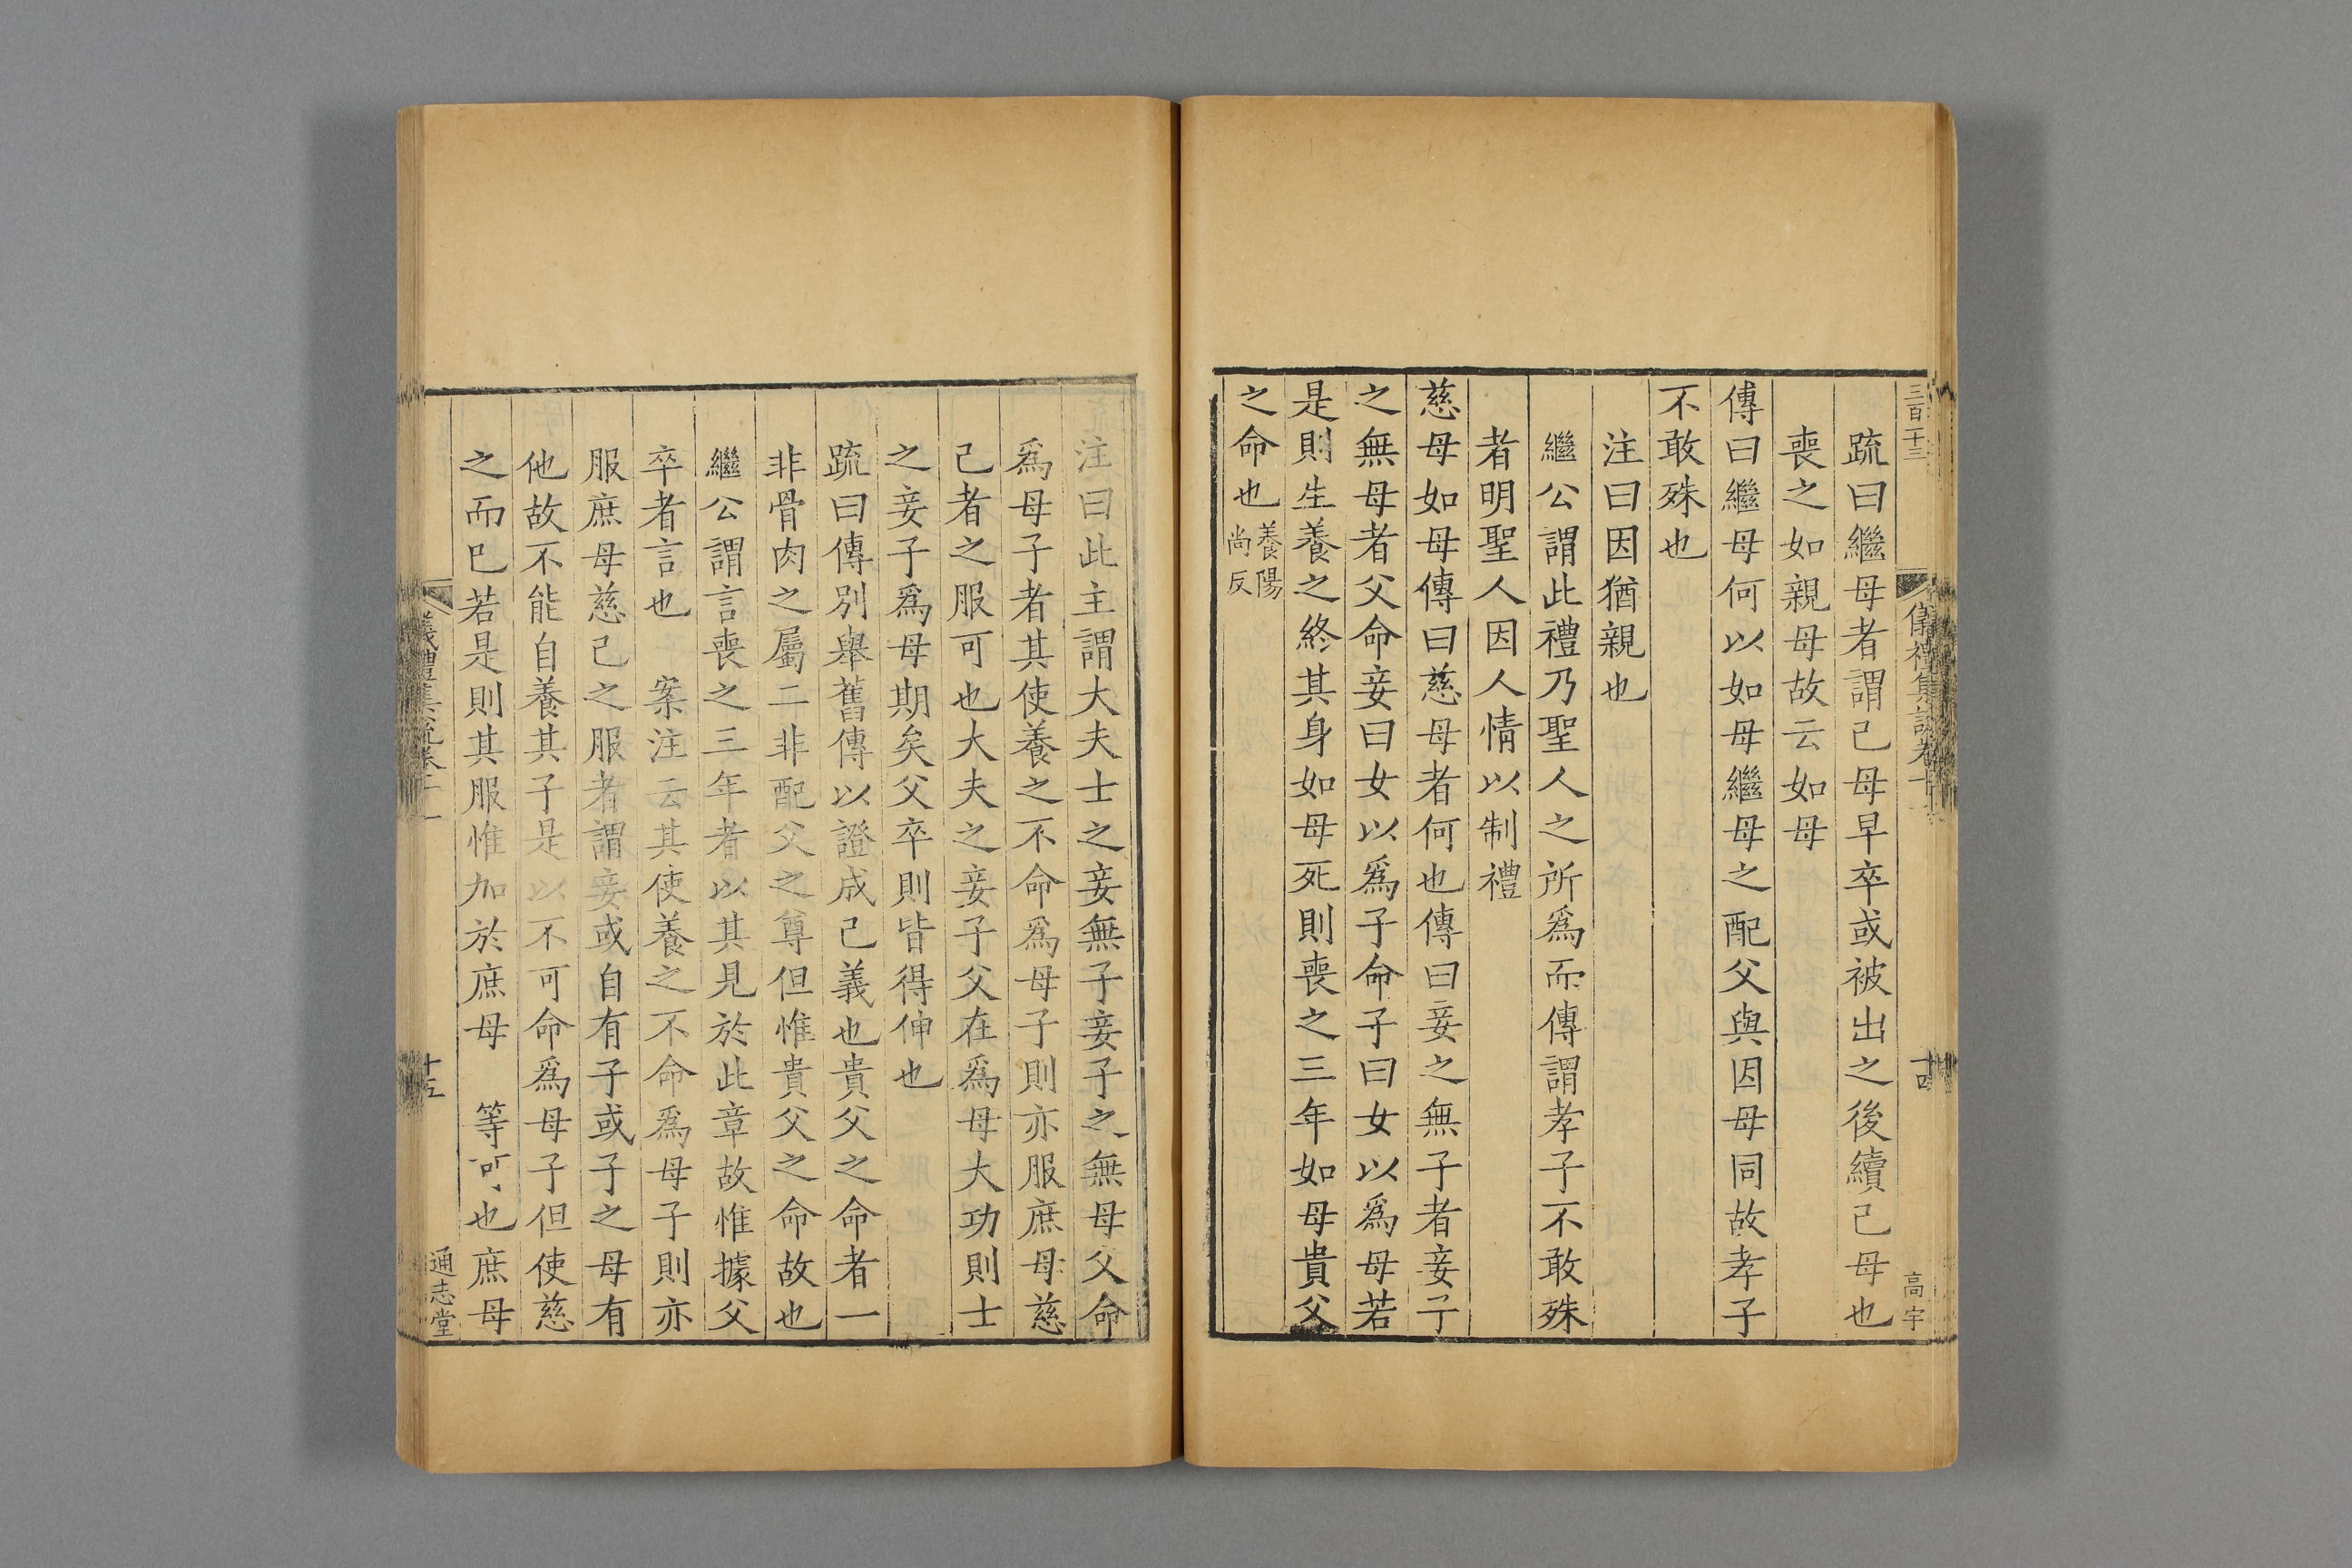 三百二十三
儀禮集說卷十一
十四
高宇
疏曰繼母者謂己母早卒或被出之後續己母也
喪之如親母故云如母
傳曰繼母何以如母繼母之配父與因母同故孝子
不敢殊也
注曰因猶親也
繼公謂此禮乃聖人之所爲而傳謂孝子不敢殊
者明聖人因人情以制禮
慈母如母傳曰慈母者何也傳曰妾之無子者妾子
之無母者父命妾曰女以爲子命子曰女以爲母若
是則生養之終其身如母死則喪之三年如母貴父
之命也養陽尚反
注曰此主謂大夫士之妾無子妾子之無母父命
爲母子者其使養之不命爲母子則亦服庶母慈
己者之服可也大夫之妾子父在爲母大功則士
之妾子爲母期矣父卒則皆得伸也
疏曰傳別舉舊傳以證成己義也貴父之命者一
非骨肉之屬二非配父之尊但惟貴父之命故也
繼公謂言喪之三年者以其見於此章故惟據父
卒者言也 案注云其使養之不命爲母子則亦
服庶母慈己之服者謂妾或自有子或子之母有
他故不能自養其子是以不可命爲母子但使慈
之而已若是則其服惟加於庶母 等可也庶母
儀禮集說卷十一
十五
通志堂